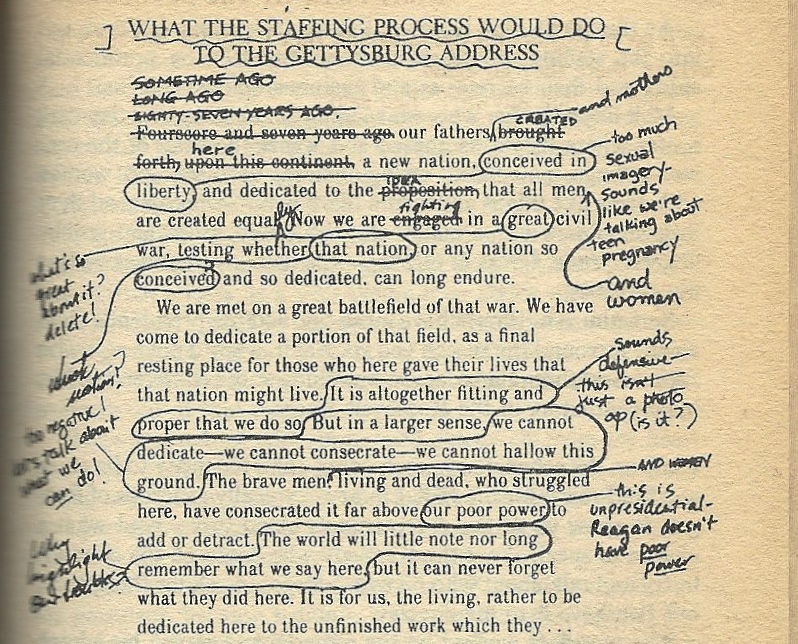 WHAT THE STAFFING PROCESS WOULD DO
TO THE GETTYSBURG ADDRESS
SOMETIME AGO
LONG AGO
EIGHTY-SEVEN YEARS AGO,
CREATED
and mothers
Fourscore and seven years ago, our fathers brought
here
forth, upon this continent, a new nation, conceived in
too much
sexual
imagery-
sounds
like we're
talking about
teen
pregnancy
IDEA
liberty, and dedicated to the proposition, that all men
and
women
ly
fighting
are created equal. Now we are engaged in a great civil
war, testing whether that nation, or any nation so
what's so
great
about it?
delete!
conceived and so dedicated, can long endure.
We are met on a great battlefield of that war. We have
come to dedicate a portion of that field, as a final
resting place for those who here gave their lives that
which
nation?
that nation might live. It is altogether fitting and
sounds
defensive-
this isn't
just a photo
op (is it?)
proper that we do so. But in a larger sense, we cannot
dedicate—we cannot consecrate—we cannot hallow this
too negative!
let's talk about
what we
can do!
ground. The brave men, living and dead, who struggled
AND WOMEN
here, have consecrated it far above our poor power to
this is
unpresidential-
Reagan doesn't
have poor
power
add or detract. The world will little note nor long
remember what we say here, but it can never forget
Why
highlight
our
what they did here. It is for us, the living, rather to be
dedicated here to the unfinished work which they . . .